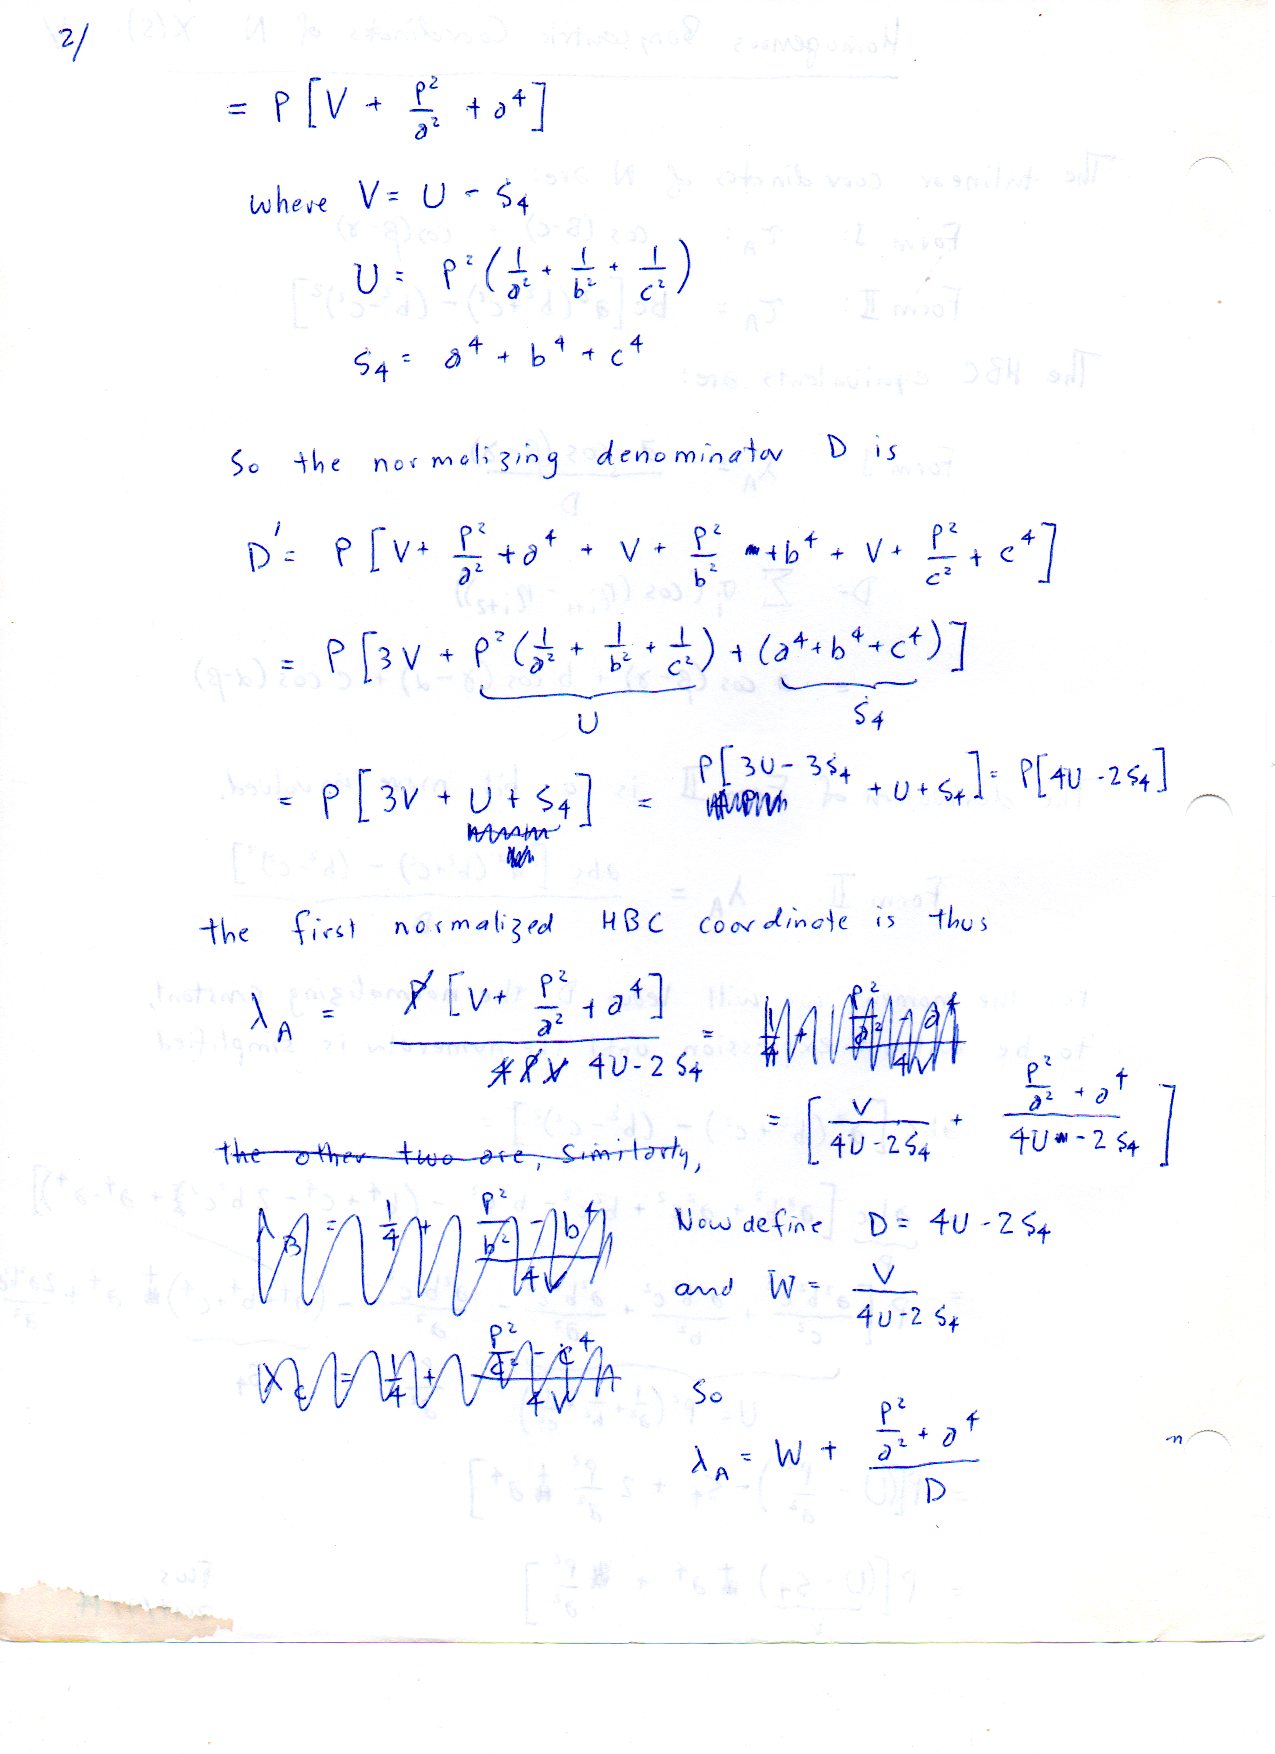 2/
= P [V + P²/a² + a⁴]
where V = U - S₄
U = P² (1/a² + 1/b² + 1/c²)
S₄ = a⁴ + b⁴ + c⁴
So the normalizing denominator D is
D' = P [V + P²/a² + a⁴ + V + P²/b² + b⁴ + V + P²/c² + c⁴]
= P [3V + P² (1/a² + 1/b² + 1/c²) + (a⁴ + b⁴ + c⁴)]
U S₄
= P [3V + U + S₄] = P [3U - 3S₄ + U + S₄] = P[4U - 2S₄]
the first normalized HBC coordinate is thus
λ_A = P [V + P²/a² + a⁴] / 4PV 4U - 2S₄ = 1/4 + (P²/a² - a⁴)/4V
= [V/(4U - 2S₄) + (P²/a² + a⁴)/(4U - 2S₄)]
the other two are, similarly,
λ_B = 1/4 + (P²/b² - b⁴)/4V
Now define D = 4U - 2S₄
and W = V/(4U - 2S₄)
λ_C = 1/4 + (P²/c² - c⁴)/4V
So
λ_A = W + (P²/a² + a⁴)/D